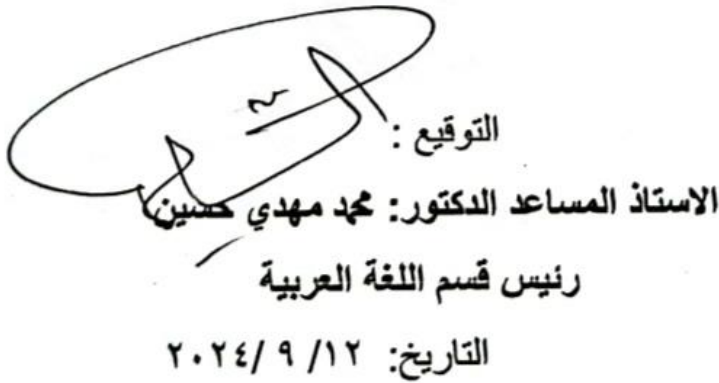 التوقيع :
الاستاذ المساعد الدكتور: محمد مهدي حسين
رئيس قسم اللغة العربية
التاريخ: ١٢/ ٩ /٢٠٢٤